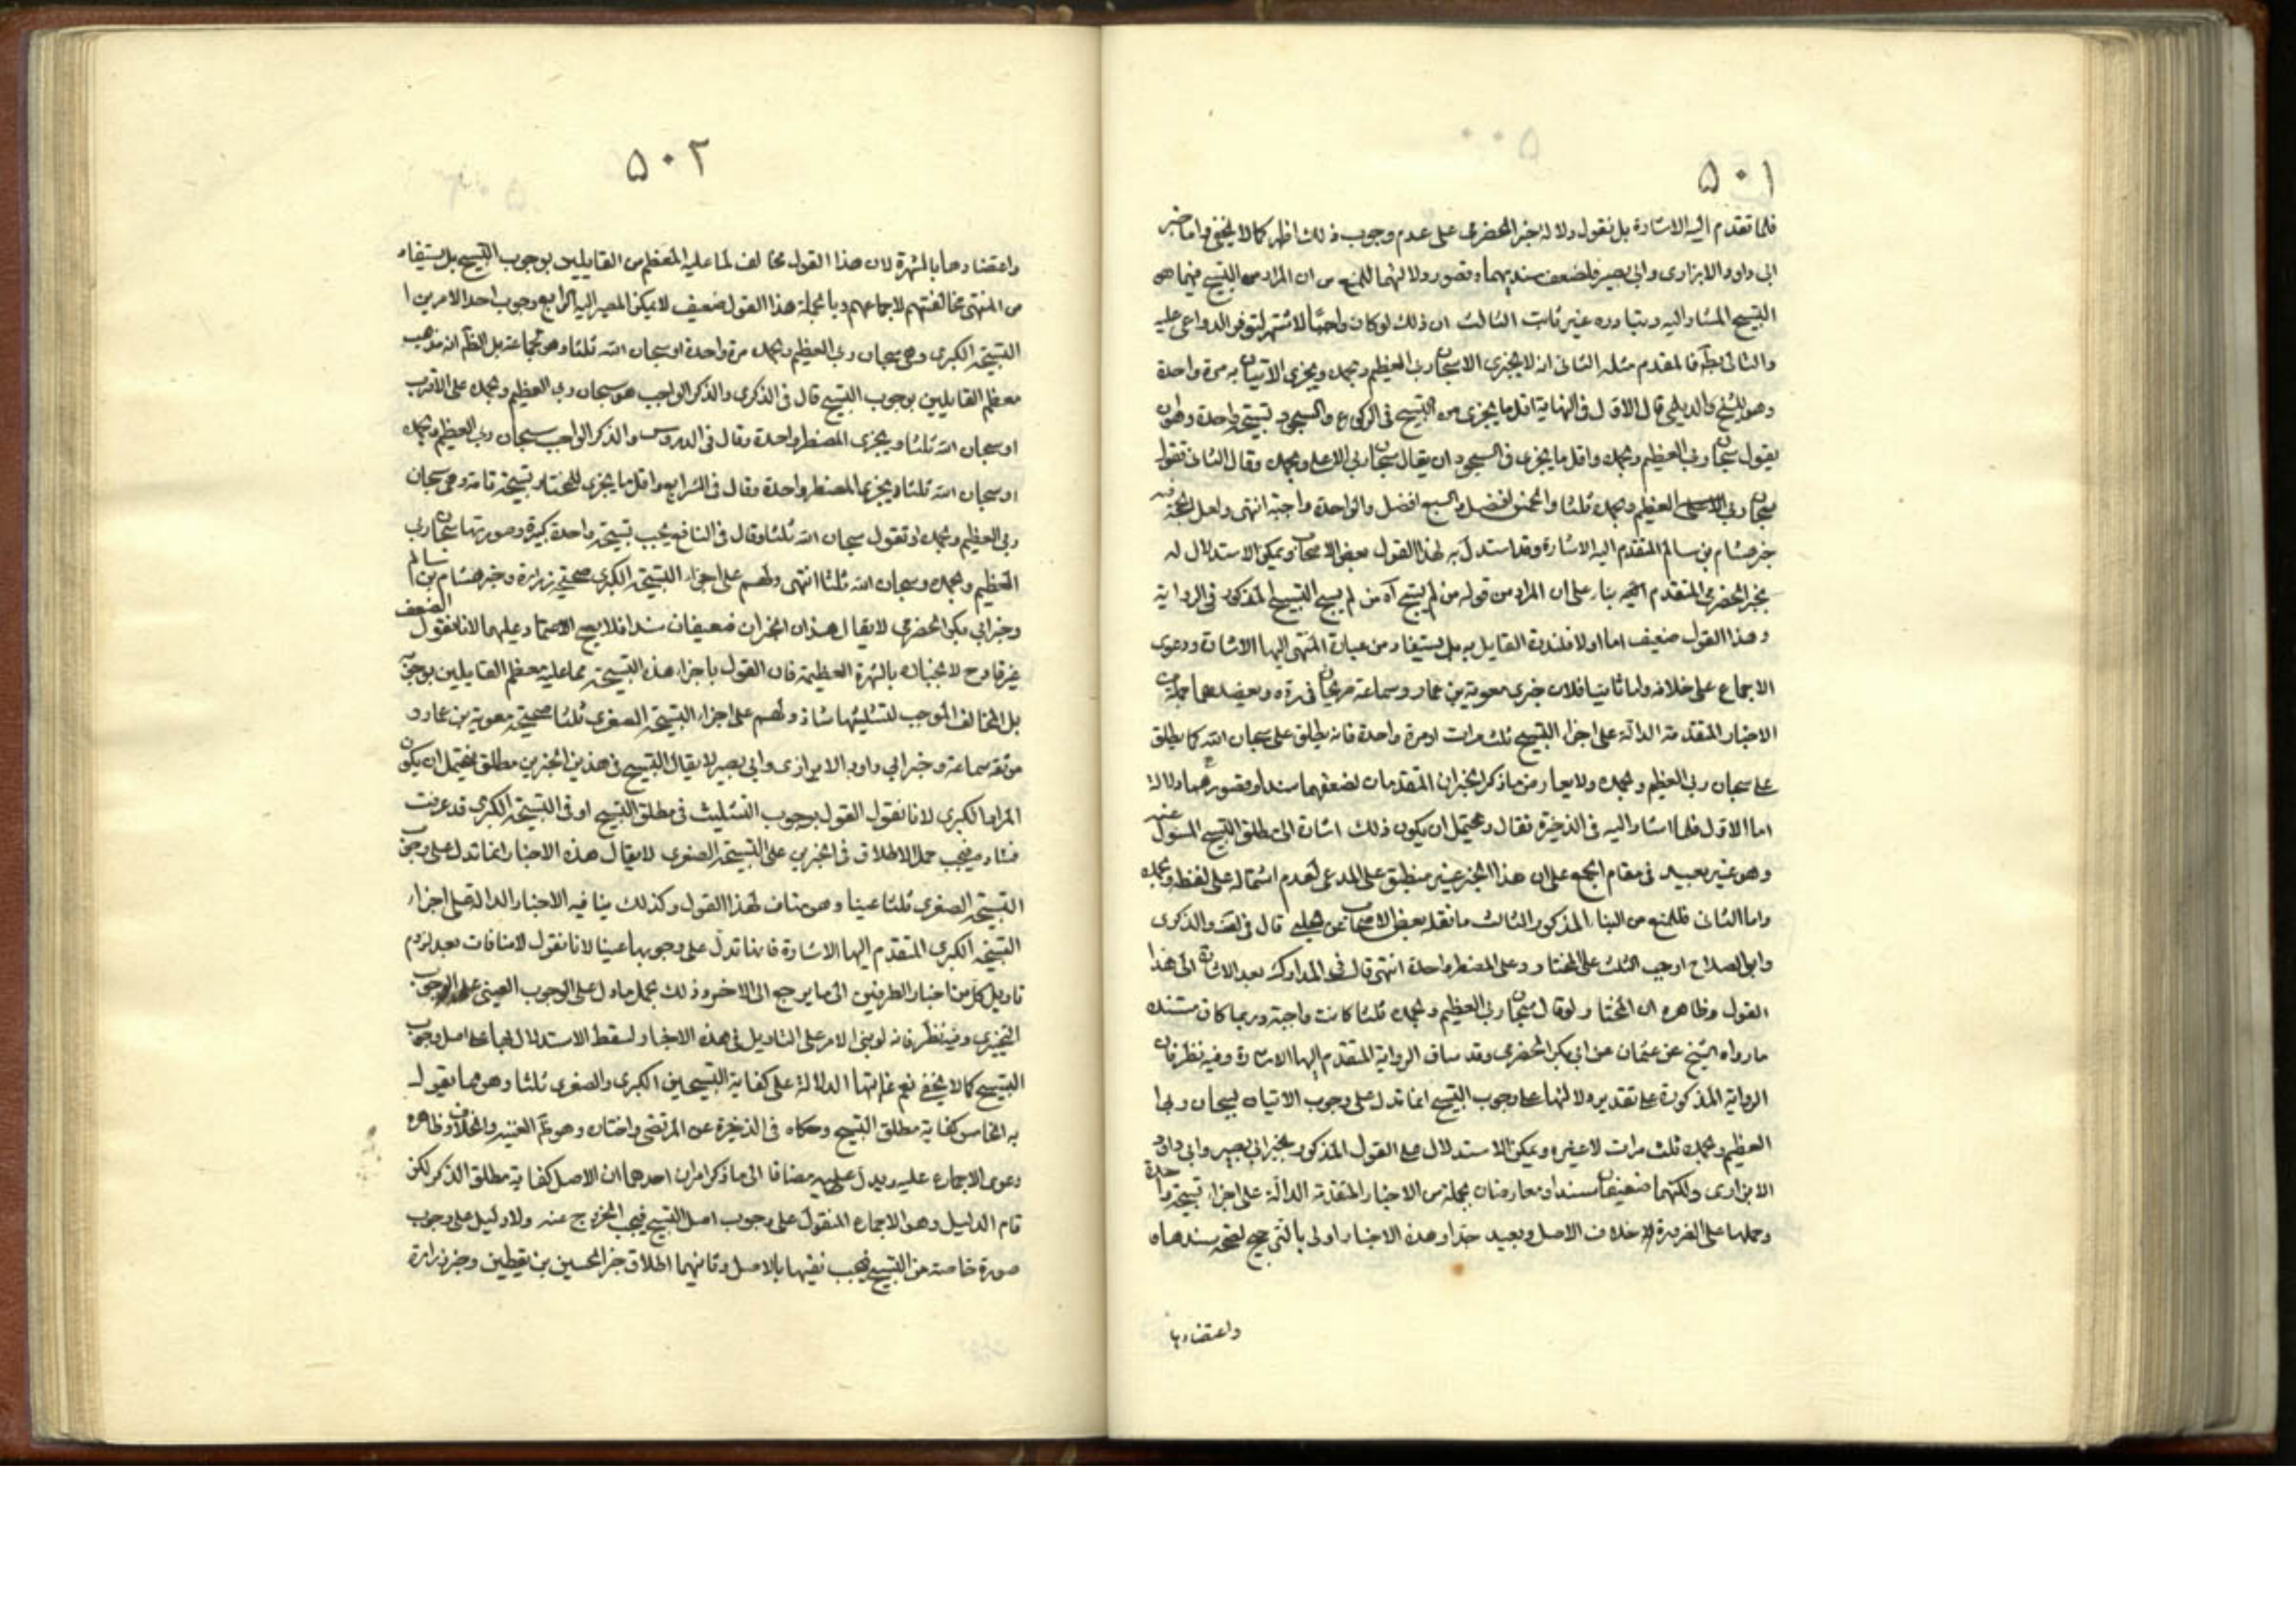 ٥٠١
فلما تقدم اليه الاشارة بل نقول دلالة خبر الحضرمى على عدم وجوب ذلك اظهر كما لا يخفى واما خبر
ابى داود الابزارى وابى بصير فلضعف سنديهما وقصور دلالتهما للمنع من ان المراد من التسبيح فيهما هو
التسبيح المشار اليه وتبادره غير ثابت الثالث ان ذلك لو كان واجبا لاشتهر لتوفر الدواعى عليه
والتالى بط فالمقدم مثله الثانى انه لا يجزى الا سبحان ربى العظيم وبحمده ويجزى الاتيان به مرة واحدة
وهو للشيخ والديلمى قال الاول فى النهاية اقل ما يجزى من التسبيح فى الركوع والسجود تسبيحة واحدة وهو ان
يقول سبحان ربى العظيم وبحمده واقل ما يجزى فى السجود ان يقال سبحان ربى الاعلى وبحمده وقال الثانى تقول
سبحان ربى العظيم وبحمده ثلثا والخمس افضل والسبع افضل والواحدة واجبة انتهى ولعل الحجة فيه
خبر هشام بن سالم المتقدم اليه الاشارة وقد استدل به لهذا القول بعض الاصحاب ويمكن الاستدلال له
بخبر الحضرمى المتقدم اليه بناء على ان المراد من قوله من لم يسبح آه من لم يسبح التسبيح المذكور فى الرواية
وهذا القول ضعيف اما اولا فلندرة القايل به بل يستفاد من عبارة المنتهى اليها الاشارة ودعوى
الاجماع على خلافه واما ثانيا فلان خبرى معوية بن عمار وسماعة صريحان فى رده ويعضدهما جملة من
الاخبار المتقدمة الدالة على اجزاء التسبيح ثلث مرات او مرة واحدة فانه يطلق على سبحان الله كما يطلق
على سبحان ربى العظيم وبحمده ولا يعارض ما ذكر الخبران المتقدمان لضعفهما سندا وقصورهما دلالة
اما الاول فلما اشار اليه فى الذخيرة فقال ويحتمل ان يكون ذلك اشارة الى مطلق التسبيح المسئول عنه
وهو غير بعيد فى مقام الجمع على ان هذا الخبر غير منطبق على المدعى لعدم اشتماله على لفظ وبحمده
واما الثانى فللمنع من البناء المذكور الثالث ما نقله بعض الاصحاب عن الحلبى قال فى لف والذكرى
وابو الصلاح اوجب الثلث على المختار وعلى المضطر واحدة انتهى قال فى المدارك بعد الاشارة الى هذا
القول وظاهره ان المختار لو قال سبحان ربى العظيم وبحمده ثلثا كانت واجبة وربما كان مستنده
ما رواه الشيخ عن عثمان عن ابى بكر الحضرمى وقد ساق الرواية المتقدم اليها الاشارة وفيه نظر فان
الرواية المذكورة على تقدير دلالتها على وجوب التسبيح انما تدل على وجوب الاتيان بسبحان ربى
العظيم وبحمده ثلث مرات لا غيره ويمكن الاستدلال على القول المذكور بخبر ابى بصير وابى داود
الابزارى ولكنهما ضعيفان سندا ومعارضان بجملة من الاخبار المتقدمة الدالة على اجزاء تسبيحة واحدة
وحملها على الضرورة خلاف الاصل وبعيد جدا وهذه الاخبار اولى بالترجيح لصحة سندها
واعتضادها
٥٠٢
واعتضادها بالشهرة لان هذا القول مخالف لما عليه المعظم من القايلين بوجوب التسبيح بل يستفاد
من المنتهى مخالفتهم لاجماعهم وبالجملة هذا القول ضعيف لا يمكن المصير اليه الرابع وجوب احد الامرين ا
التسبيحة الكبرى وهى سبحان ربى العظيم وبحمده مرة واحدة او سبحان الله ثلثا وهو لجماعة بل الظ انه مذهب
معظم القايلين بوجوب التسبيح قال فى الذكرى والذكر الواجب هو سبحان ربى العظيم وبحمده على الاقرب
او سبحان الله ثلثا ويجزى المضطر واحدة وقال فى الدروس والذكر الواجب سبحان ربى العظيم وبحمده
او سبحان الله ثلثا ويجزى المضطر واحدة وقال فى الشرايع واقل ما يجزى للمختار تسبيحة تامة وهى سبحان
ربى العظيم وبحمده او تقول سبحان الله ثلثا وقال فى النافع يجب تسبيحة واحدة كبيرة وصورتها سبحان ربى
العظيم وبحمده وسبحان الله ثلثا انتهى ولهم على اجزاء التسبيحة الكبرى صحيحة زرارة وخبر هشام بن سالم
وخبر ابى بكر الحضرمى لا يقال هذان الخبران ضعيفان سندا فلا يصح الاعتماد عليهما لانا نقول الضعف
غير قادح لانجباره بالشهرة العظيمة فان القول باجزاء هذه التسبيحة مما عليه معظم القايلين بوجوبه
بل المخالف الموجب لتثليثها شاذ ولهم على اجزاء التسبيحة الصغرى ثلثا صحيحة معوية بن عمار و
موثقة سماعة وخبر ابى داود الابزارى وابى بصير لا يقال التسبيح فى هذين الخبرين مطلق فيحتمل ان يكون
المراد الكبرى لانا نقول القول بوجوب التثليث فى مطلق التسبيح او فى التسبيحة الكبرى قد عرفت
فساده فيجب حمل الاطلاق فى الخبرين على التسبيحة الصغرى لا يقال هذه الاخبار انما تدل على وجوب
التسبيحة الصغرى ثلثا عينا وهو مناف لهذا القول وكذلك ينافيه الاخبار الدالة على اجزاء
التسبيحة الكبرى المتقدم اليها الاشارة فانها تدل على وجوبها عينا لانا نقول لا منافات بعد لزوم
تاويل كل من اخبار الطرفين الى ما يرجع الى الاخر وذلك بحمل ما دل على الوجوب العينى على الوجوب
التخييرى وفيه نظر فانه لو بنى الامر على التاويل فى هذه الاخبار لسقط الاستدلال بها على اصل وجوب
التسبيح كما لا يخفى نعم غايتها الدلالة على كفاية التسبيحتين الكبرى والصغرى ثلثا وهو مما يقول
به الخامس كفاية مطلق التسبيح وحكاه فى الذخيرة عن المرتضى واختاره وهو ظ الغنية والخلاف وظاهره
دعوى الاجماع عليه ويدل عليه مضافا الى ما ذكر امران احدهما ان الاصل كفاية مطلق الذكر لكن
قام الدليل وهو الاجماع المنقول على وجوب اصل التسبيح فيجب الخروج عنه ولا دليل على وجوب
صورة خاصة من التسبيح فيجب نفيها بالاصل وثانيهما اطلاق خبر الحسين بن يقطين وخبر زرارة